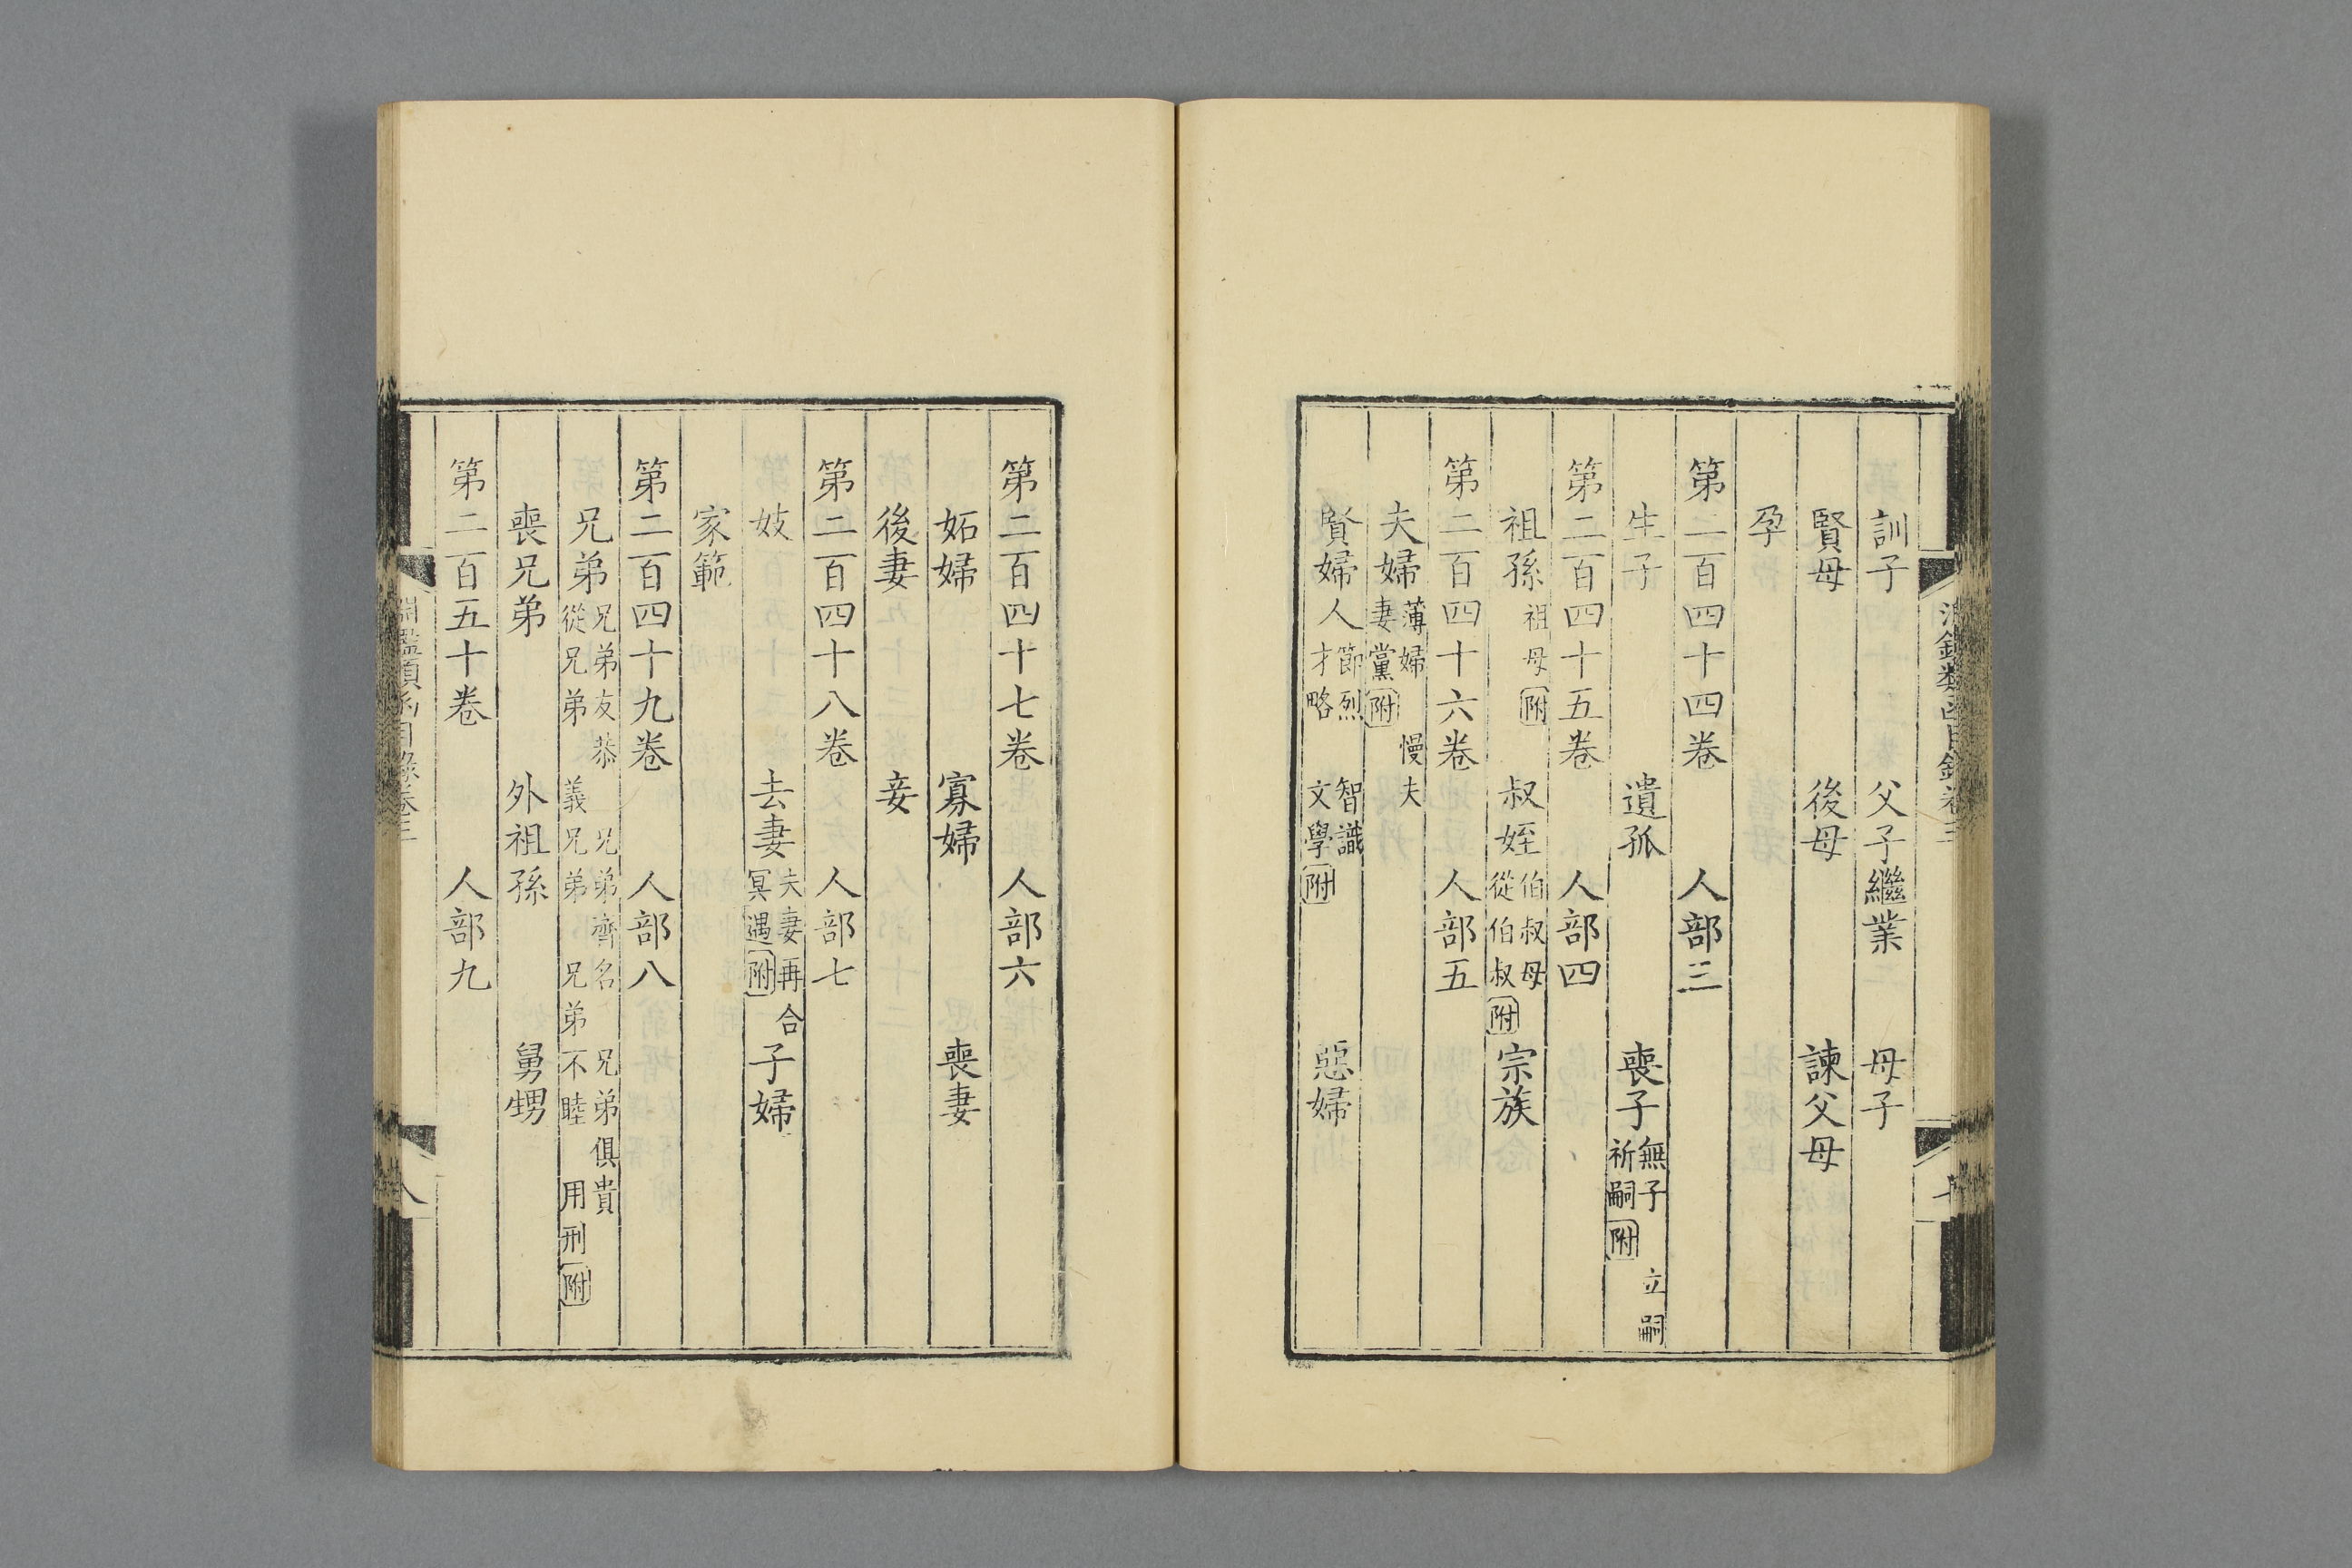 訓子 父子繼業 母子
賢母 後母 諫父母
孕
第二百四十四卷 人部三
生子 遺孤 喪子 無子 立嗣 祈嗣 附
第二百四十五卷 人部四
祖孫 祖母 附 叔姪 伯叔母 從伯叔 附 宗族
第二百四十六卷 人部五
夫婦 薄婦 慢夫 妻黨 附
賢婦人 節烈 智識 才略 文學 附 惡婦
第二百四十七卷 人部六
妬婦 寡婦 喪妻
後妻 妾
第二百四十八卷 人部七
妓 去妻 夫妻再合 冥遇 附 子婦
家範
第二百四十九卷 人部八
兄弟 兄弟友恭 兄弟齊名 兄弟俱貴 從兄弟 義兄弟 兄弟不睦 用刑 附
喪兄弟 外祖孫 舅甥
第二百五十卷 人部九
淵鑑類函目錄卷三 八